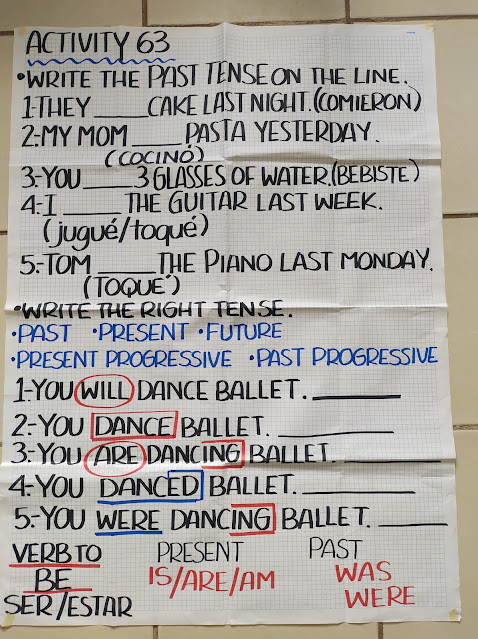 ACTIVITY 63
•WRITE THE PAST TENSE ON THE LINE.
1-THEY ____ CAKE LAST NIGHT.(COMIERON)
2.-MY MOM ____ PASTA YESTERDAY.
(COCINÓ)
3.-YOU ____ 3 GLASSES OF WATER.(BEBISTE)
4.-I ____ THE GUITAR LAST WEEK.
(jugué/toqué)
5.-TOM ____ THE PIANO LAST MONDAY.
(TOQUÉ)
•WRITE THE RIGHT TENSE.
•PAST •PRESENT •FUTURE
•PRESENT PROGRESSIVE •PAST PROGRESSIVE
1.-YOU WILL DANCE BALLET. ____
2.-YOU DANCE BALLET. ____
3.-YOU ARE DANCING BALLET. ____
4.-YOU DANCED BALLET. ____
5.-YOU WERE DANCING BALLET. ____
VERB TO PRESENT PAST
BE IS/ARE/AM WAS
SER/ESTAR WERE